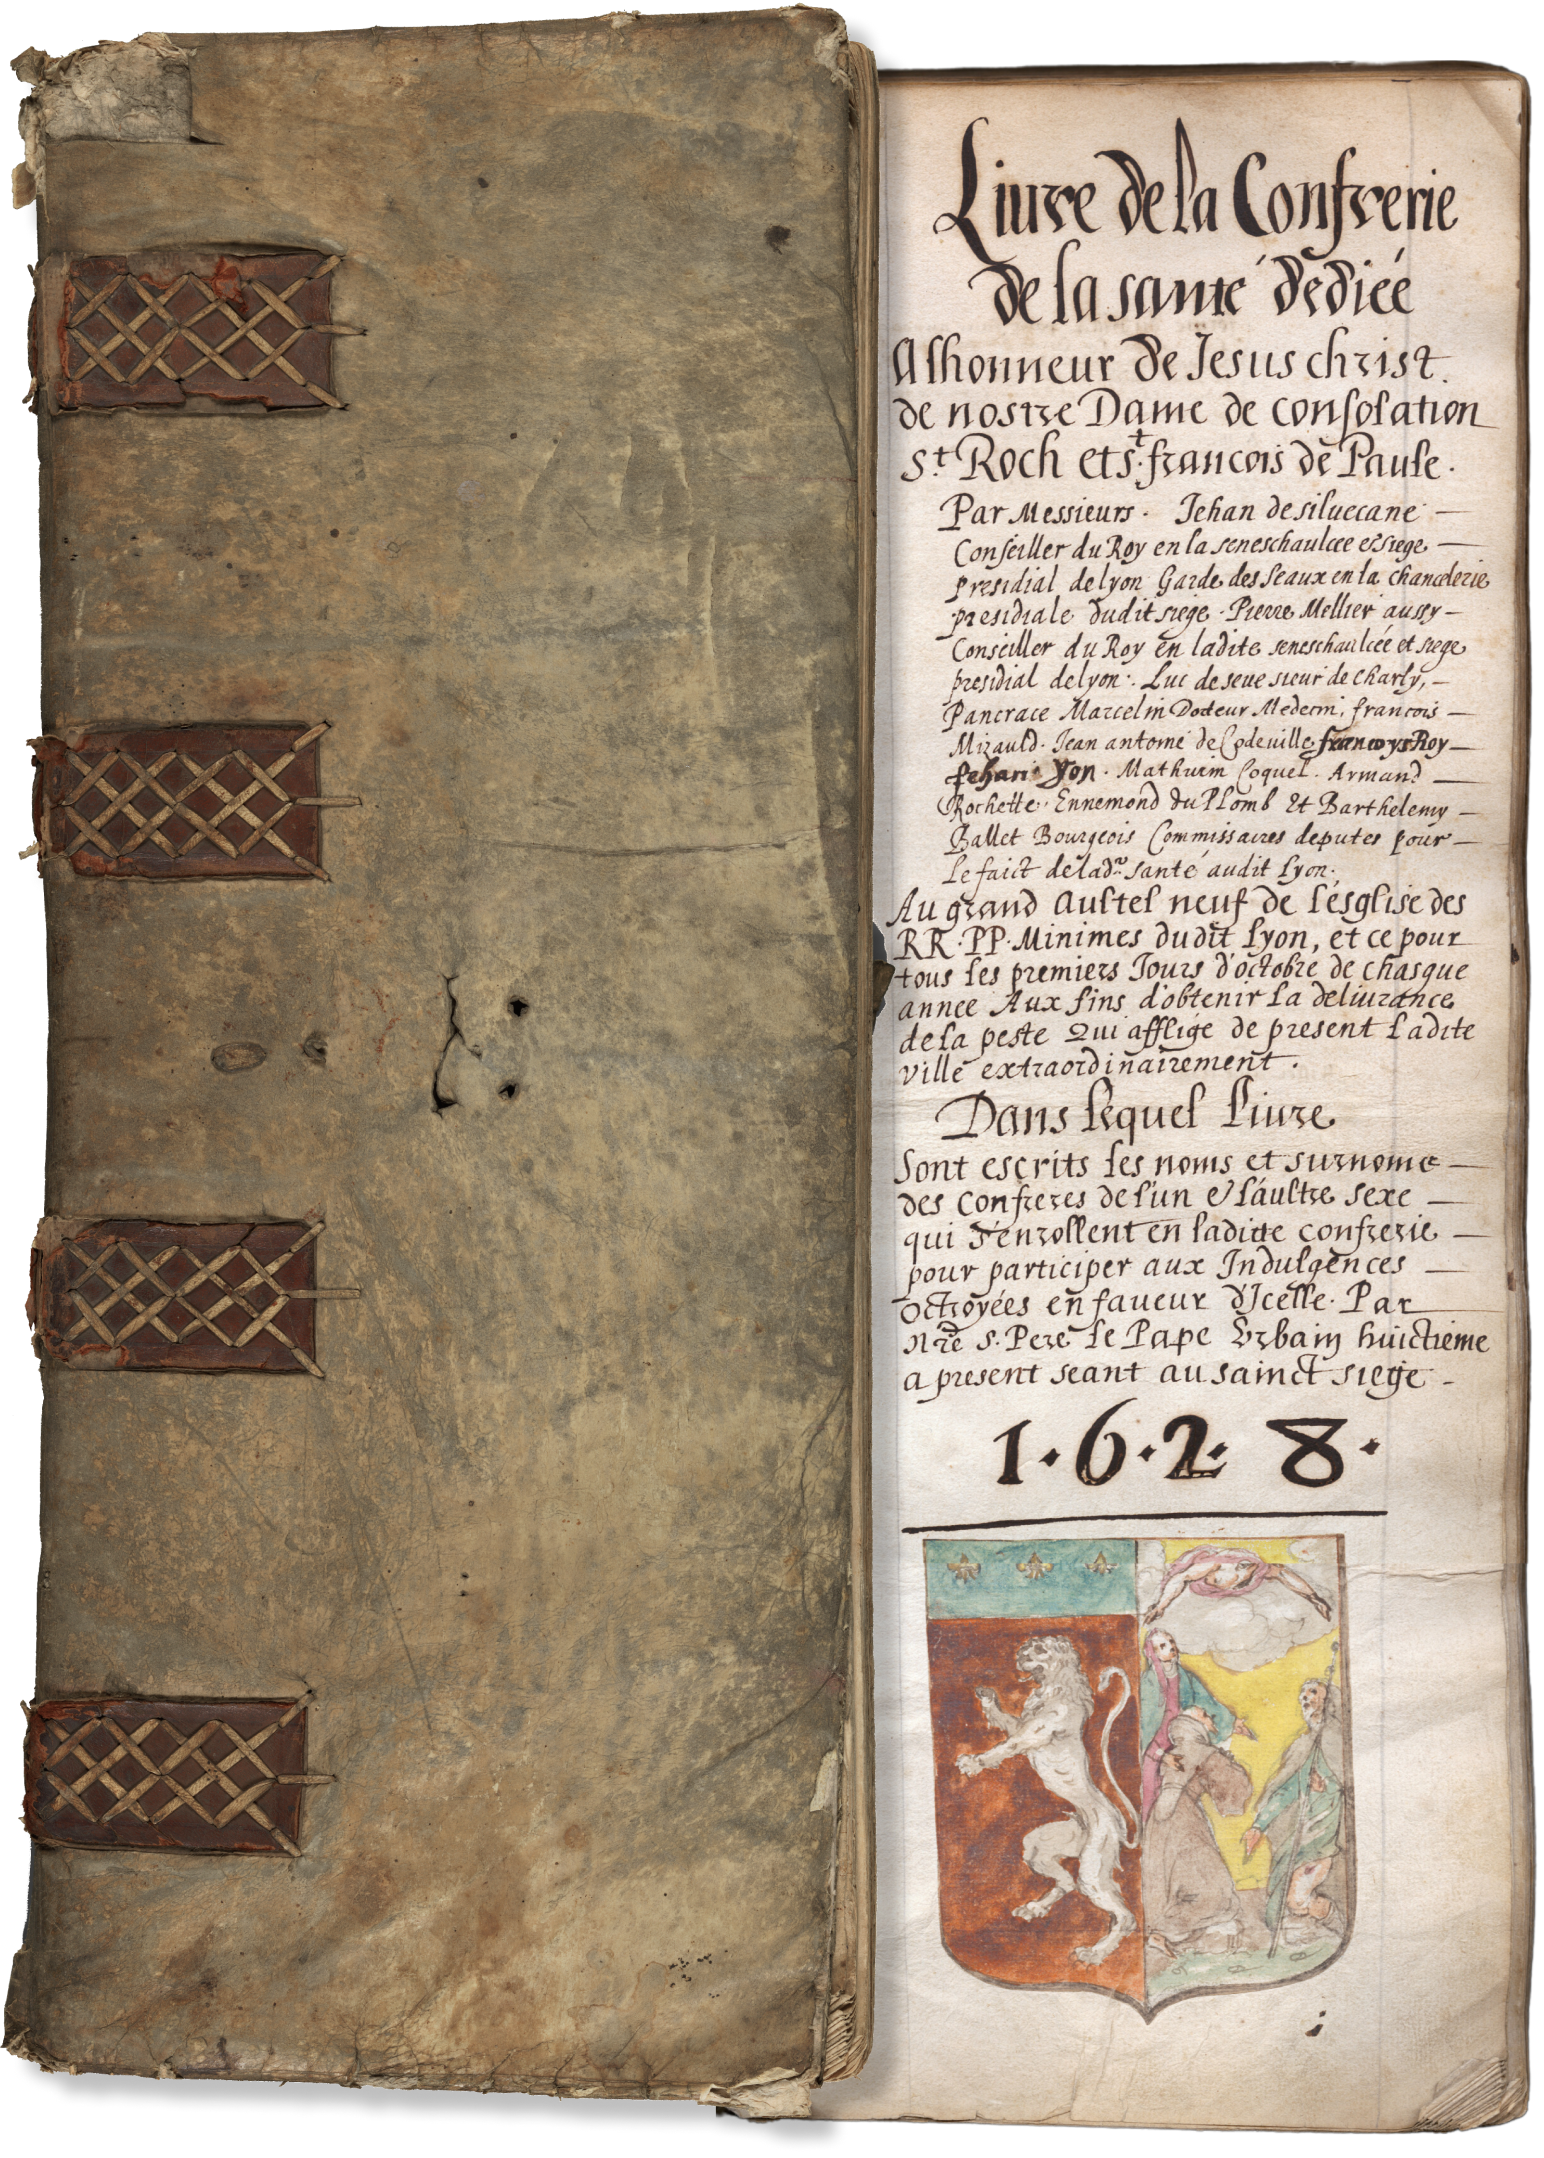 Liure de la Confrerie
de la santé dédiéé
A lhonneur de Jesus christ.
de nostre Dame de consolation
S.t Roch et s.t francois de Paule.
Par Messieurs. Jehan de siluecane —
Conseiller du Roy en la seneschaulcee & siege —
presidial de lyon Garde des seaux en la chancelerie
presidiale dudit siege. Pierre Mellier aussy —
Conseiller du Roy en ladite seneschaulcée et siege
presidial de lyon. Luc de seue sieur de charly, —
Pancrace Marcelin Docteur Medecin, francois —
Mizauld. Jean antome de Codeuille francoys Roy —
Jehan Yon. Mathurin Coquel. Armand —
Rochette. Ennemond du Plomb Et Barthelemy —
Ballet Bourgeois Commissaires deputes pour —
le faict de lad.e santé audit lyon.
Au grand aultel neuf de l'ésglise des
RR. PP. Minimes dudit lyon, et ce pour
tous les premiers Jours d'octobre de chasque
annee Aux fins d'obtenir la deliurance
de la peste Qui afflige de present ladite
ville extraordinairement.
Dans lequel liure
Sont escrits les noms et surnoms —
des confreres de l'un & láultre sexe —
qui s'enrollent en laditte confrerie —
pour participer aux Indulgences —
octroyées en faueur d'Icelle. Par
Nre S. Pere le Pape Vrbain huictieme
a present seant au sainct siege -
1·6·2·8·